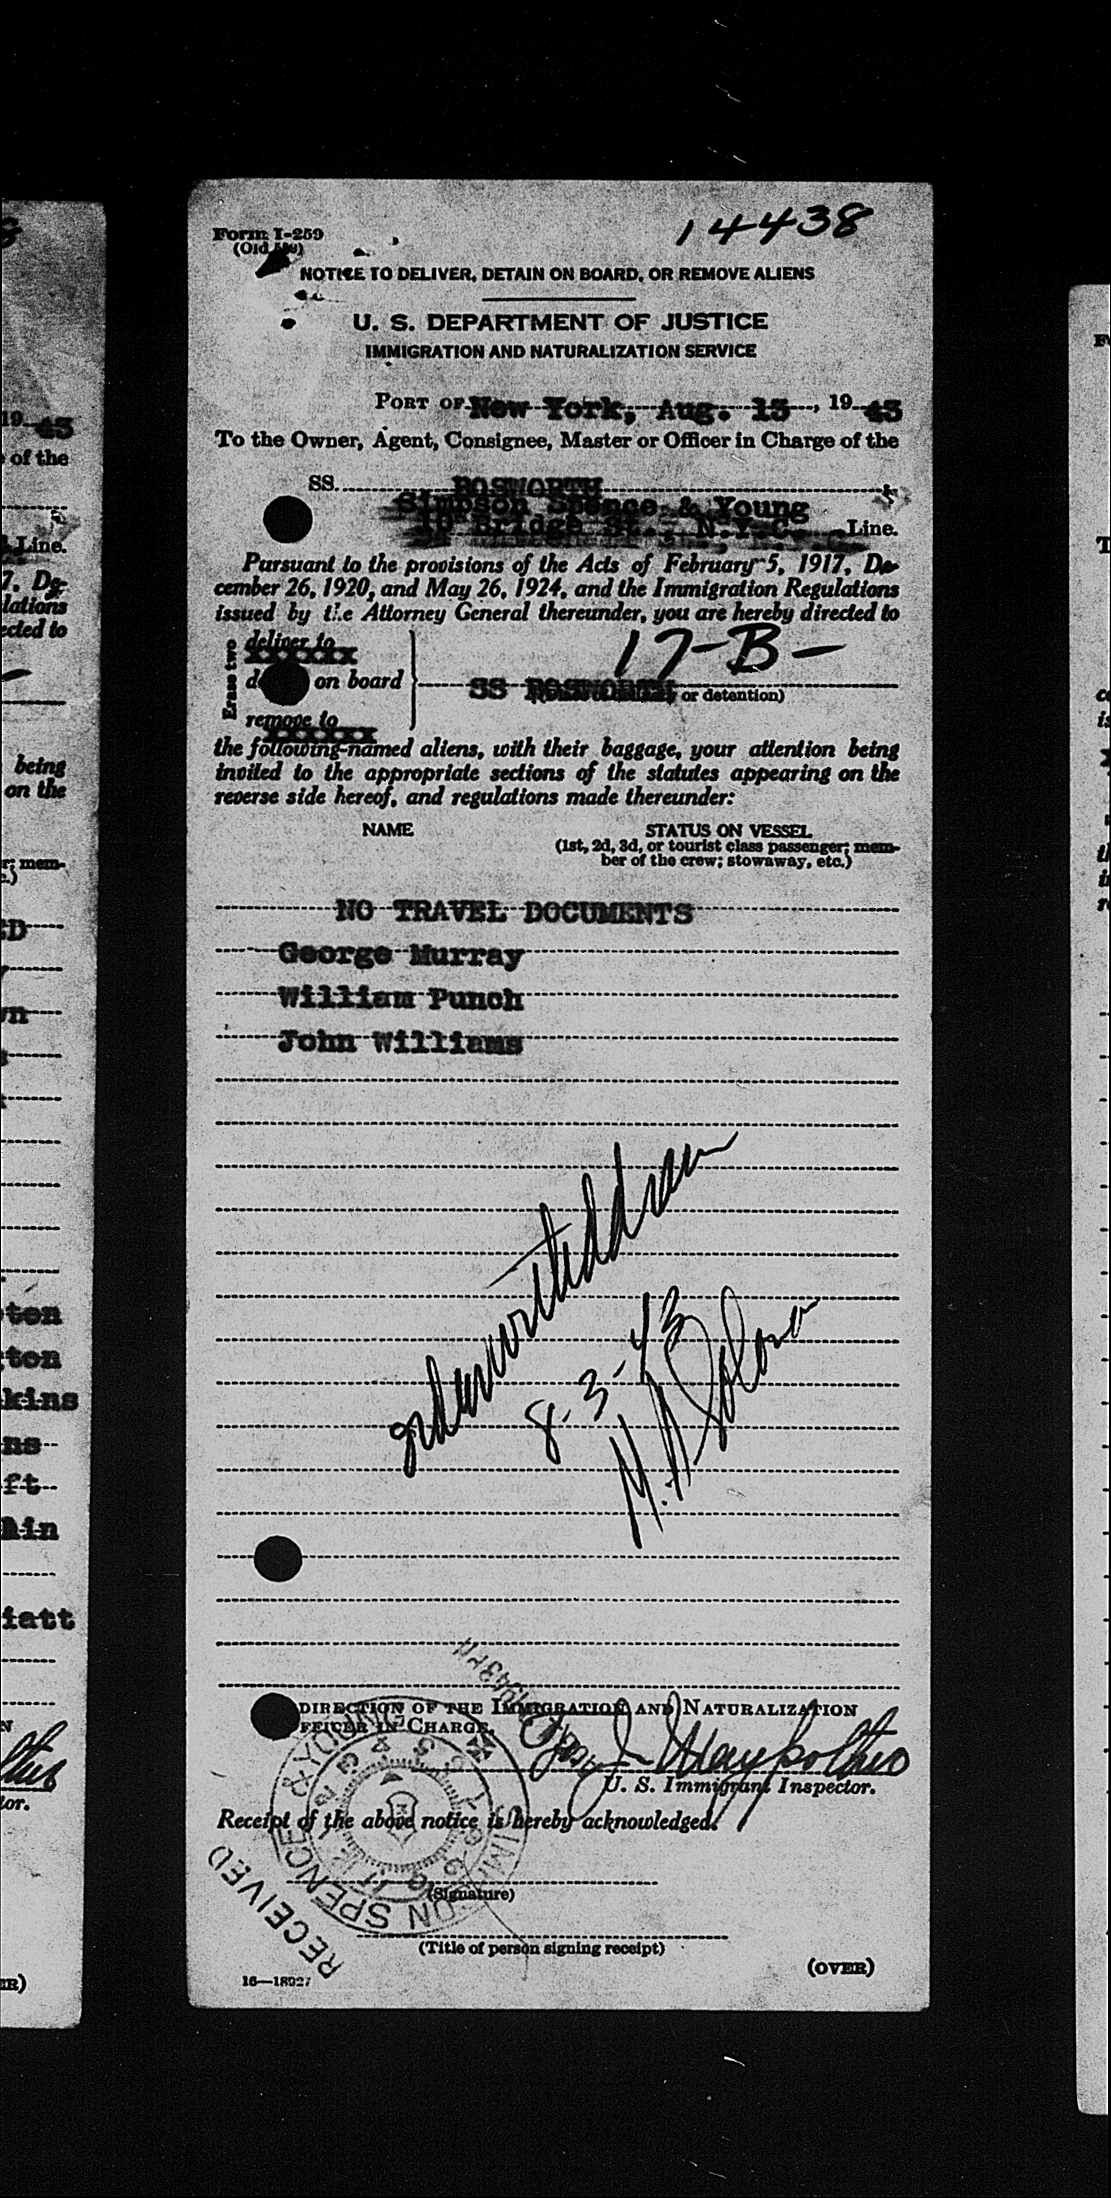 14438
Form I-259
(Old
NOTICE TO DELIVER, DETAIN ON BOARD, OR REMOVE ALIENS
U. S. DEPARTMENT OF JUSTICE
IMMIGRATION AND NATURALIZATION SERVICE
PORT OF New York, Aug. 13, 1943
To the Owner, Agent, Consignee, Master or Officer in Charge of the
SS. BOSWORTH
Simpson Spence & Young
10 Bridge St., N.Y.C. Line.
Pursuant to the provisions of the Acts of February 5, 1917, De-
cember 26, 1920, and May 26, 1924, and the Immigration Regulations
issued by the Attorney General thereunder, you are hereby directed to
17-B-
Erase two
deliver to
on board
SS BOSWORTH or detention)
remove to
the following-named aliens, with their baggage, your attention being
invited to the appropriate sections of the statutes appearing on the
reverse side hereof, and regulations made thereunder:
NAME
STATUS ON VESSEL
(1st, 2d, 3d, or tourist class passenger; mem-
ber of the crew; stowaway, etc.)
NO TRAVEL DOCUMENTS
George Murray
William Punch
John Williams
order withdrawn
8-3-43
DIRECTION OF THE IMMIGRATION AND NATURALIZATION
OFFICER IN CHARGE.
U. S. Immigrant Inspector.
Receipt of the above notice is hereby acknowledged.
SIMPSON SPENCE & YOUNG
RECEIVED
(Signature)
(Title of person signing receipt)
(OVER)
16—18927
19 43
of the
Line.
7, De-
lations
ected to
being
on the
r; mem-
ton
kins
ns
ft
iatt
tor.